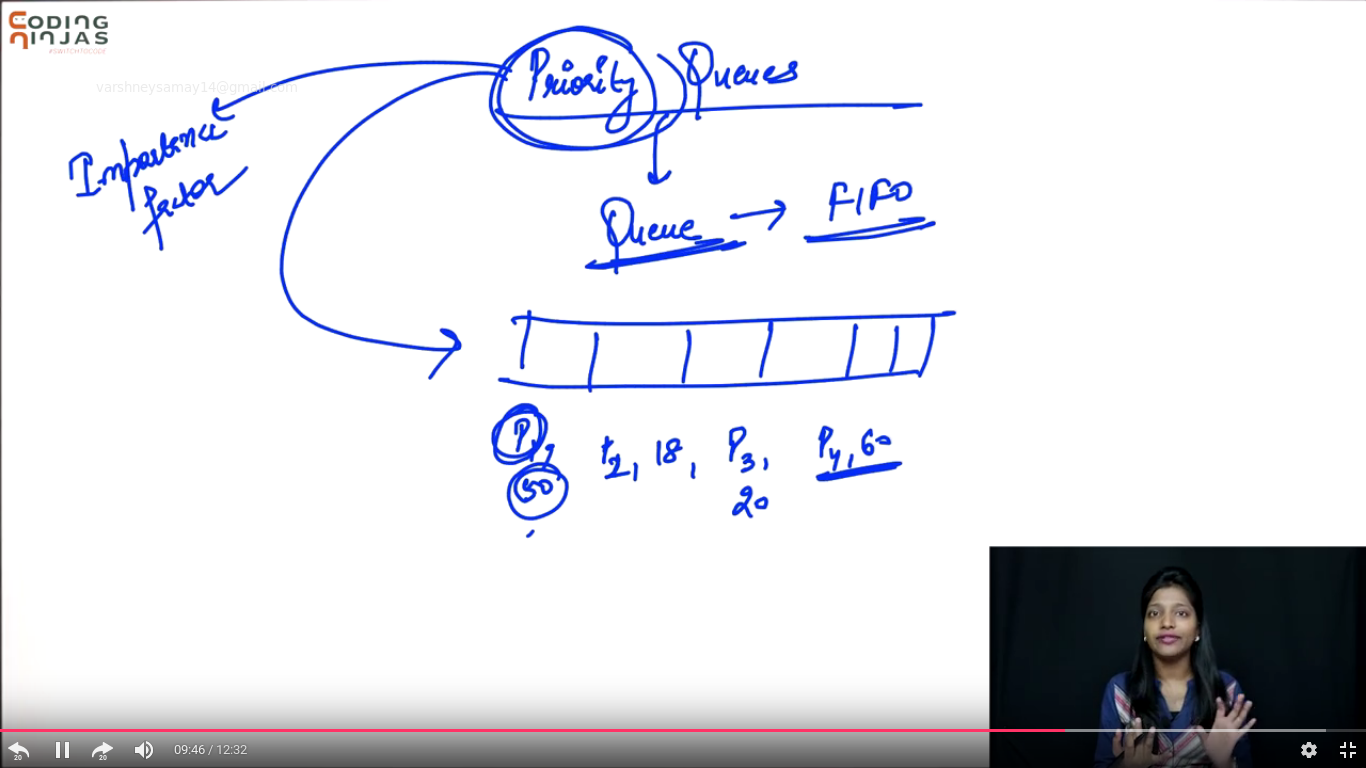 CODING
NINJAS
#SWITCHTOCODE
varshneysamay14@gmail.com
Priority Queues
Importance
factor
Queue → FIFO
P1, P2, 18, P3, P4, 60
50 20
20 20 09:46 / 12:32